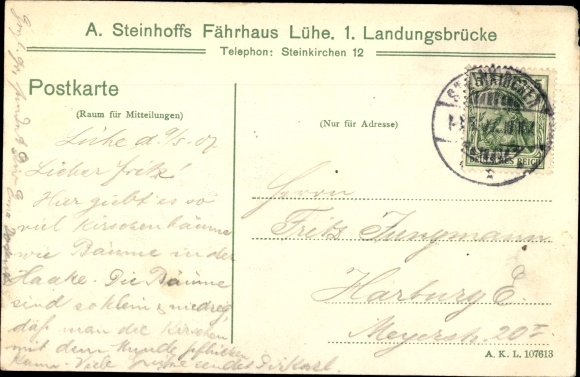 A. Steinhoffs Fährhaus Lühe. 1. Landungsbrücke
Telephon: Steinkirchen 12
Postkarte
(Raum für Mitteilungen)
(Nur für Adresse)
Lühe d. 9/5. 07
Lieber Fritz!
Hier giebt es so
viel Kirschenbäume
wie Bäume in der
Haake. Die Bäume
sind so klein u niedrig,
daß man die Kirschen
mit dem Munde pflücken
kann. Viele Grüße sendet Dir Karl.
Herrn
Fritz Jungmann
Harburg E.
Meyerstr. 20 I.
DEUTSCHES REICH
A. K. L. 107613